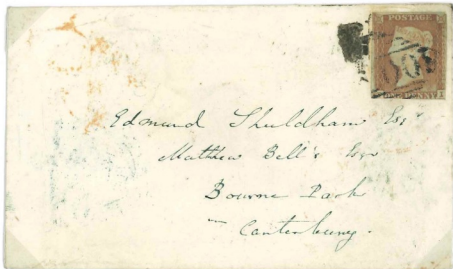 POSTAGE
ONE PENNY
Edmund Shuldham Esqr
Matthew Bell's Esqr
Bourne Park
Canterbury.